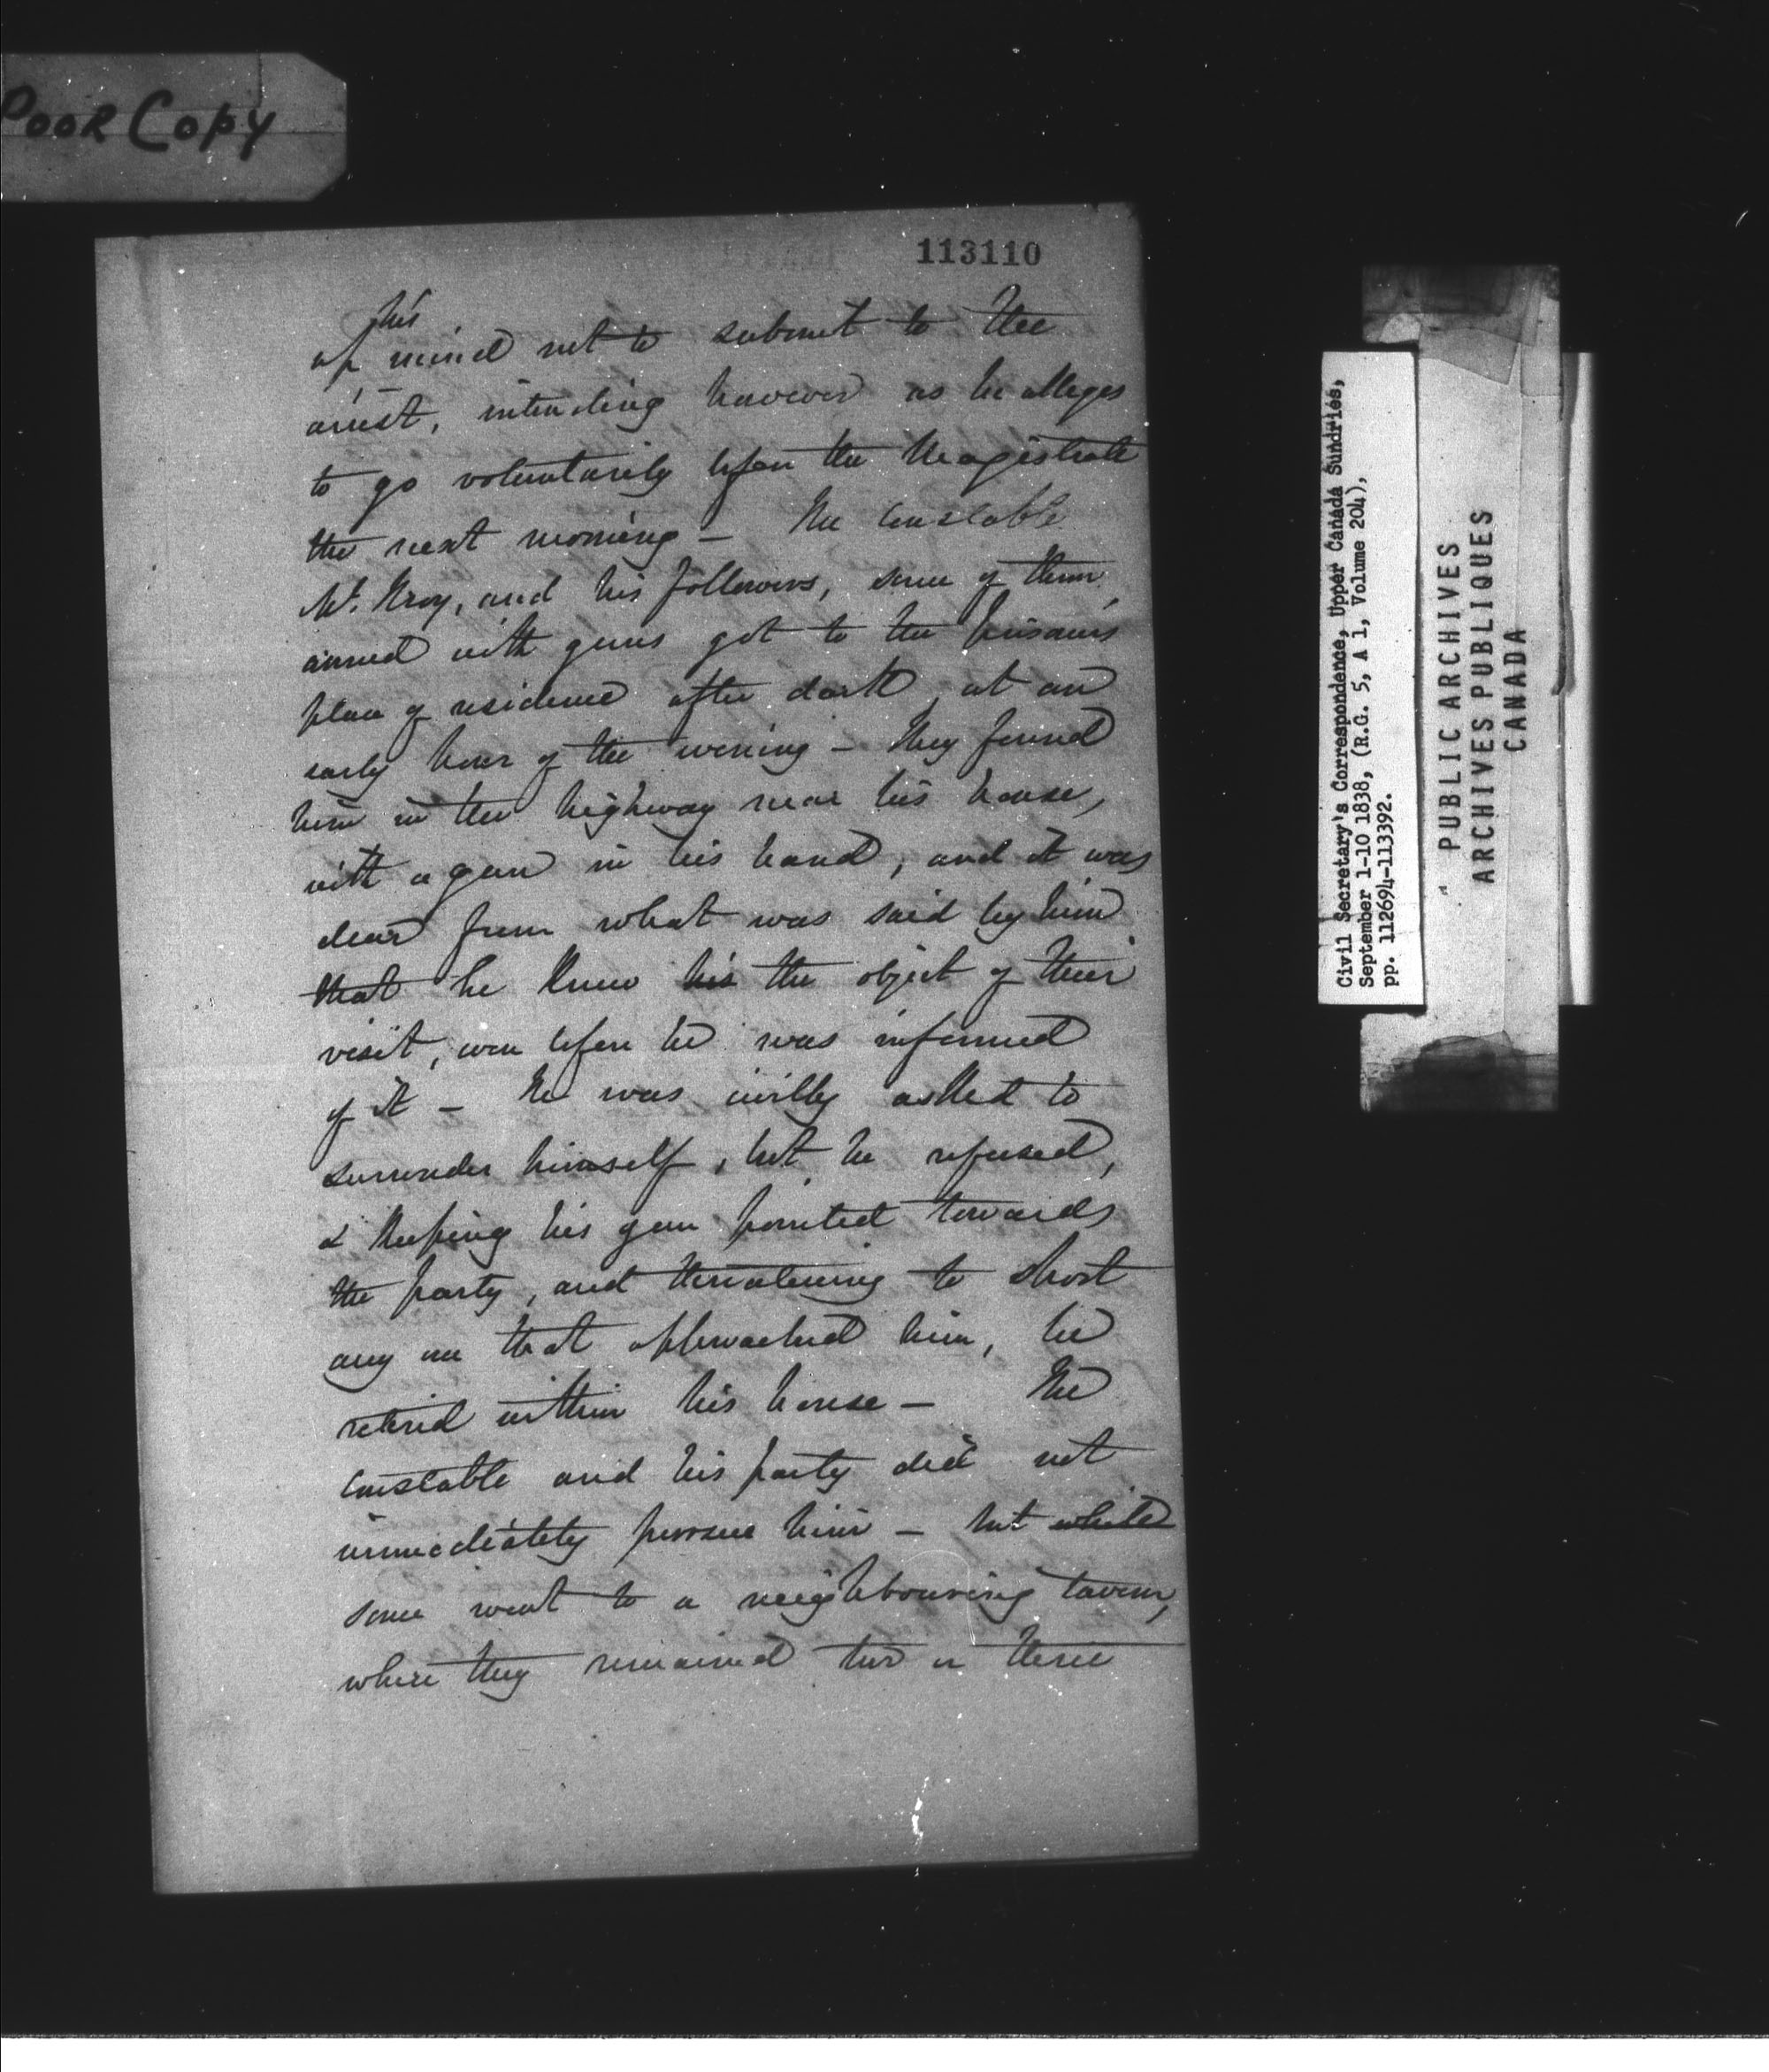 Poor Copy
113110
his
up mind not to submit to the
arrest, intending however as he alleges
to go voluntarily before the Magistrate
the next morning – The Constable
Mr. Gray, and his followers, some of them
armed with guns got to the prisoner's
place of residence after dark, at an
early hour of the evening – They found
him in the highway near his house,
with a gun in his hand, and it was
clear from what was said by him
that he knew his the object of their
visit, even before he was informed
of it – He was civilly asked to
surrender himself, but he refused,
& keeping his gun pointed towards
the party, and threatening to shoot
any one that approached him, he
retired within his house – The
constable and his party did not
immediately pursue him – but while
some went to a neighbouring tavern,
where they remained two or three
Civil Secretary's Correspondence, Upper Canada Sundries,
September 1-10 1838, (R.G. 5, A 1, Volume 204),
pp. 112694-113392.
PUBLIC ARCHIVES
ARCHIVES PUBLIQUES
CANADA